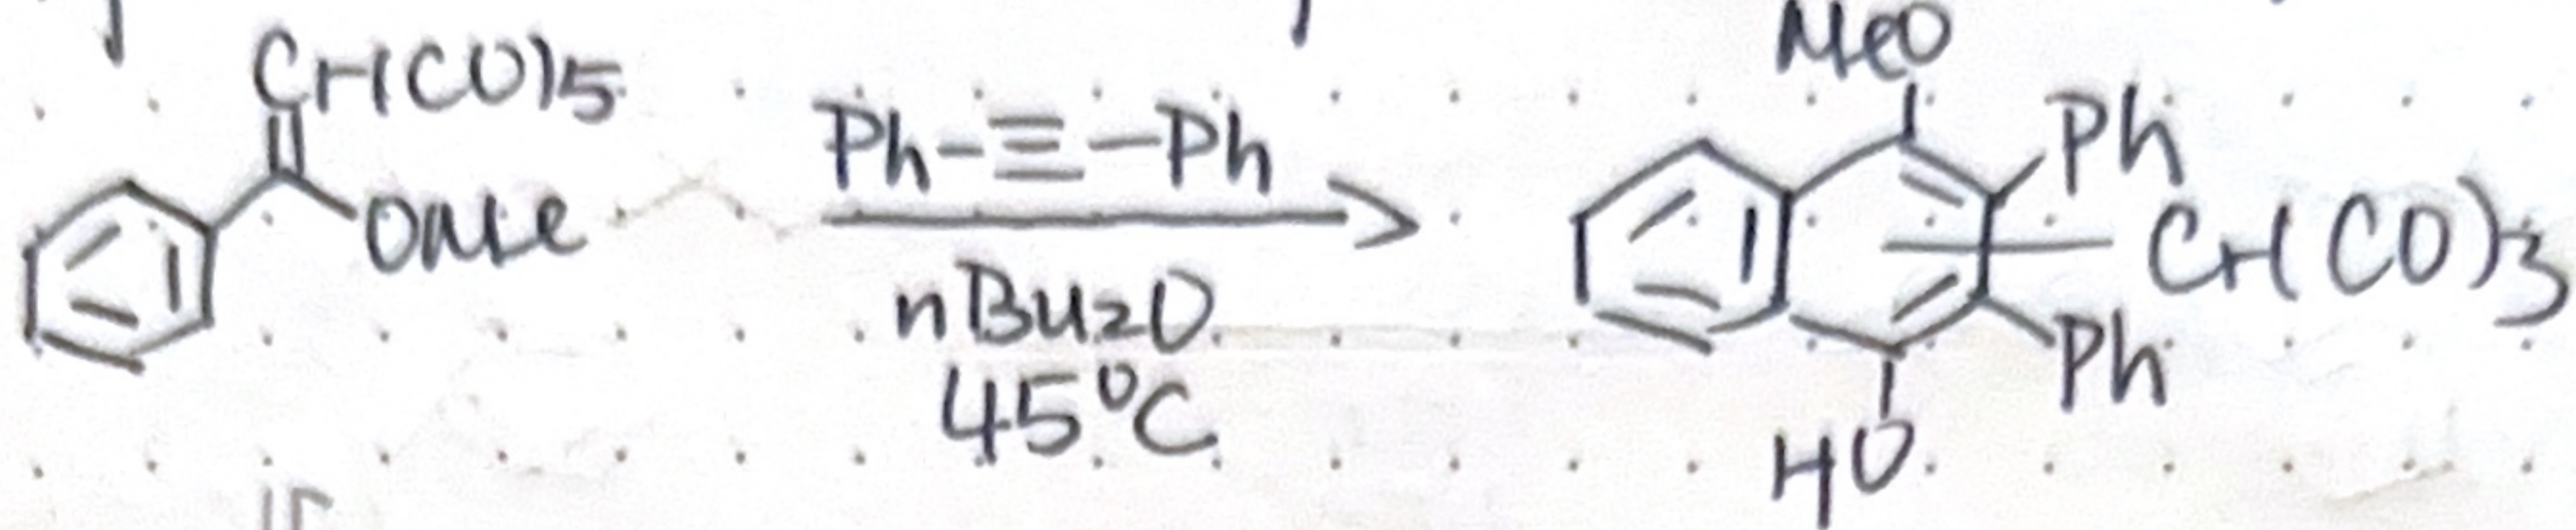 Cr(CO)5
OMe
Ph-≡-Ph
nBu2O
45°C
MeO
Ph
Cr(CO)3
Ph
HO